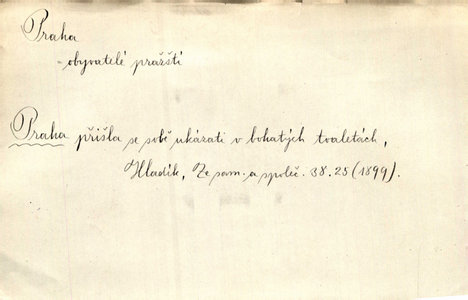 Praha
- obyvatelé pražští
Praha přišla se sobě ukázati v bohatých toaletách,
Hladík, Ze sam. a společ. 38.25 (1899).